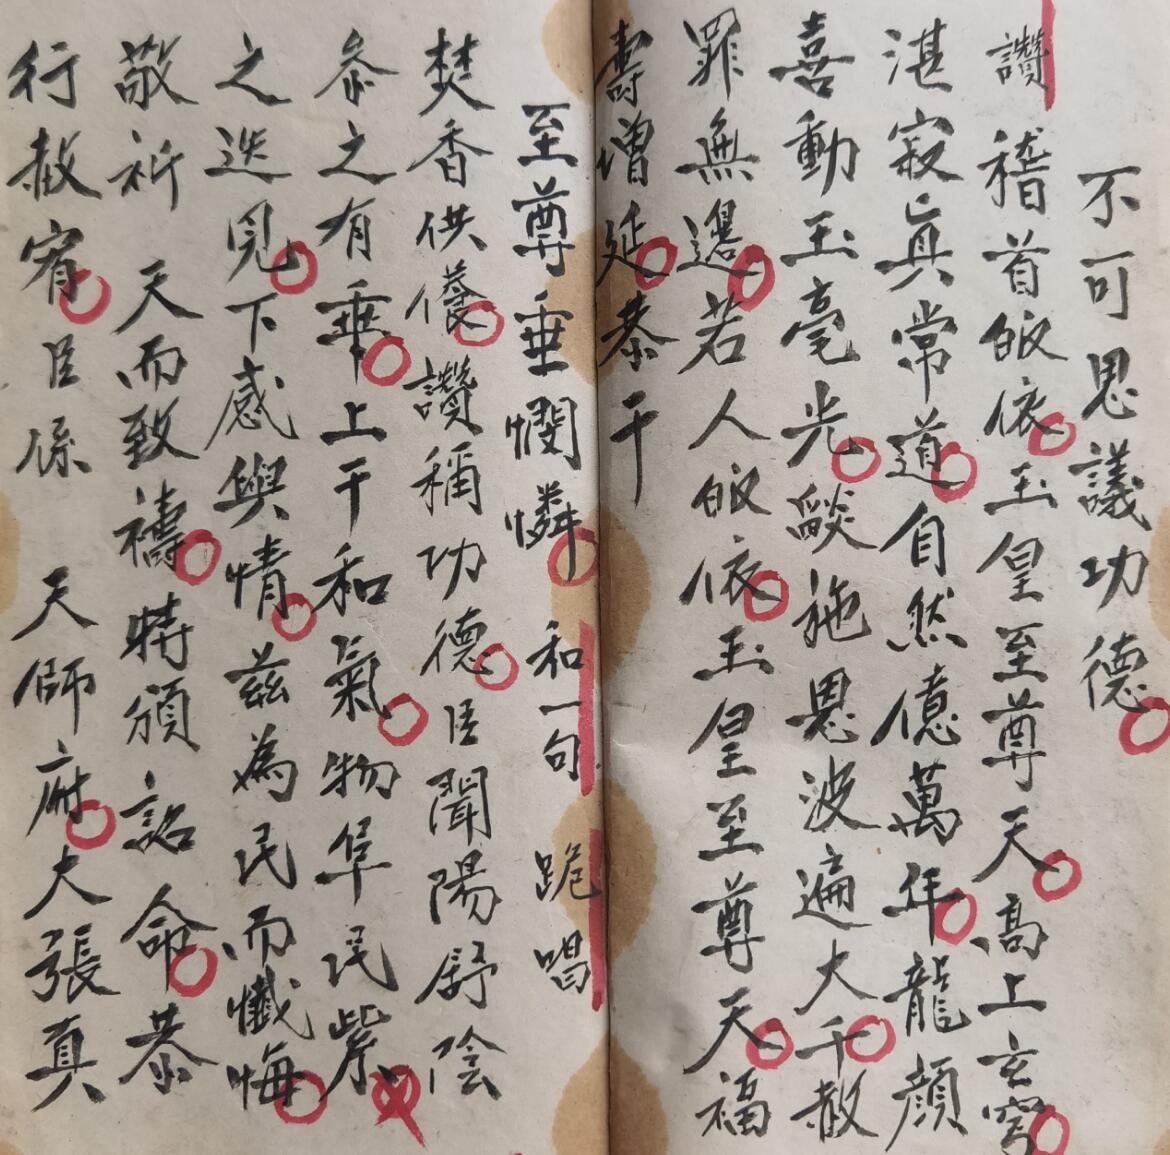 不可思議功德
讚 稽首皈依玉皇至尊天高上玄穹
湛寂真常道自然億萬年龍顏
喜動玉毫光燄施恩波遍大千赦
罪無邊若人皈依玉皇至尊天福
壽增延恭干
至尊垂憫憐 和一句 跪唱
焚香供養讚稱功德臣聞陽舒陰
叅之有垂上干和氣物阜民
之迭見下感與情兹為民而懺悔
敬祈 天而致禱特頒詔命恭
行赦宥臣係 天師府大張真